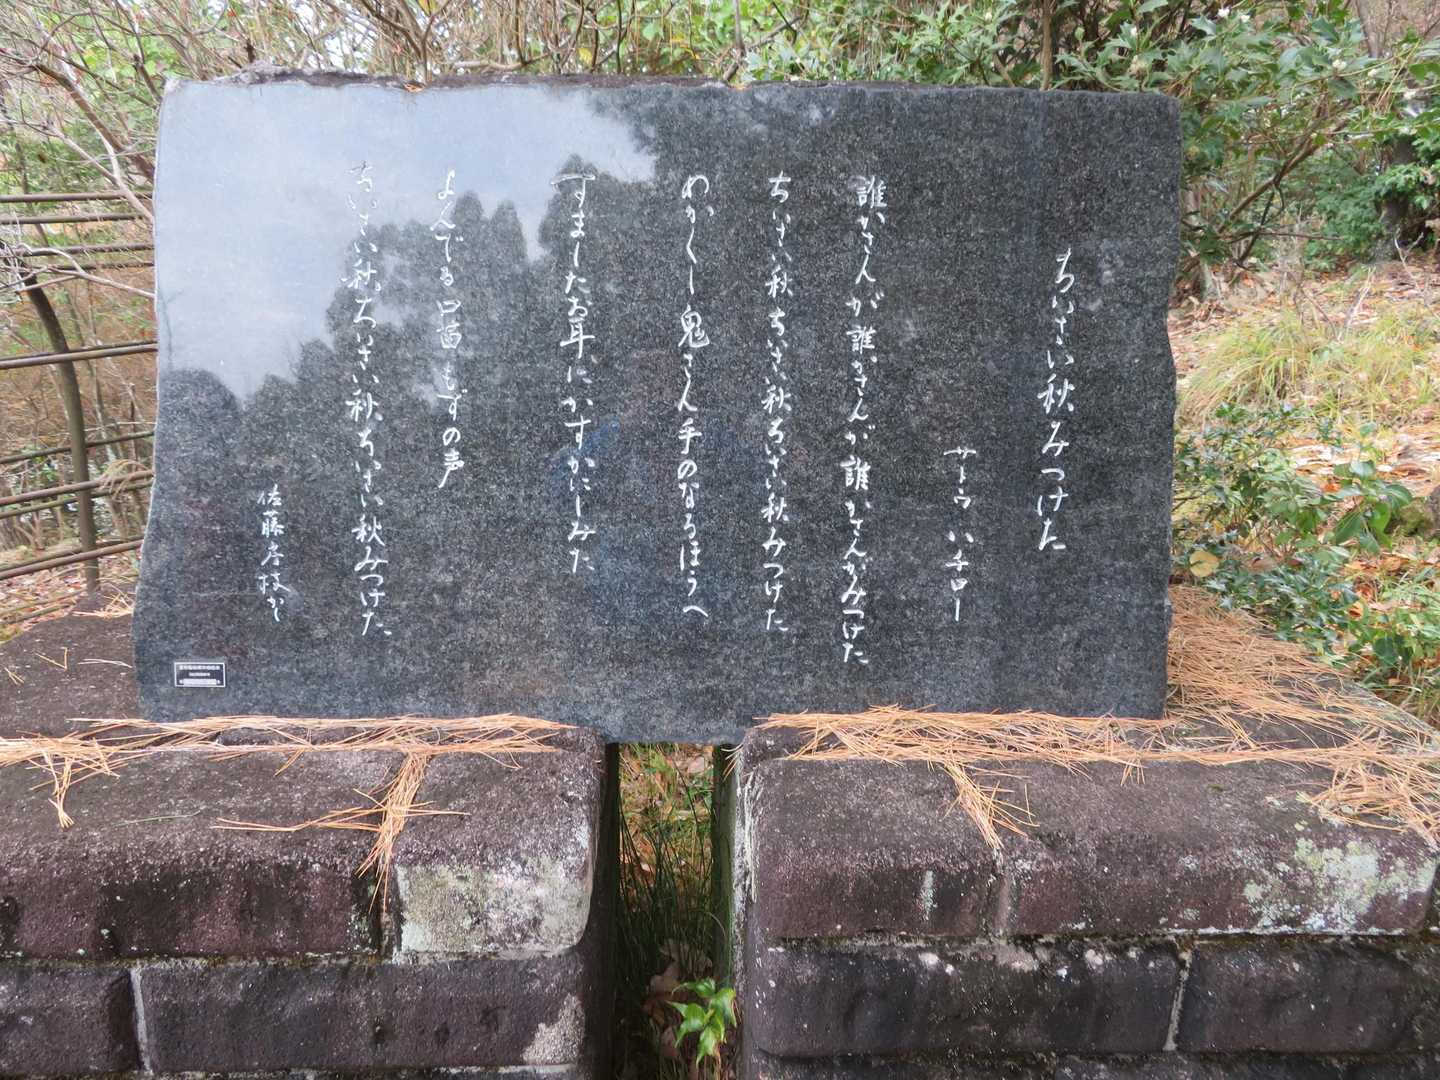 ちいさい秋みつけた
サトウ ハチロー
誰かさんが誰かさんが誰かさんがみつけた
ちいさい秋ちいさい秋ちいさい秋みつけた
めかくし鬼さん手のなるほうへ
すましたお耳にかすかにしみた
よんでる口笛もずの声
ちいさい秋ちいさい秋ちいさい秋みつけた
佐藤房枝かく